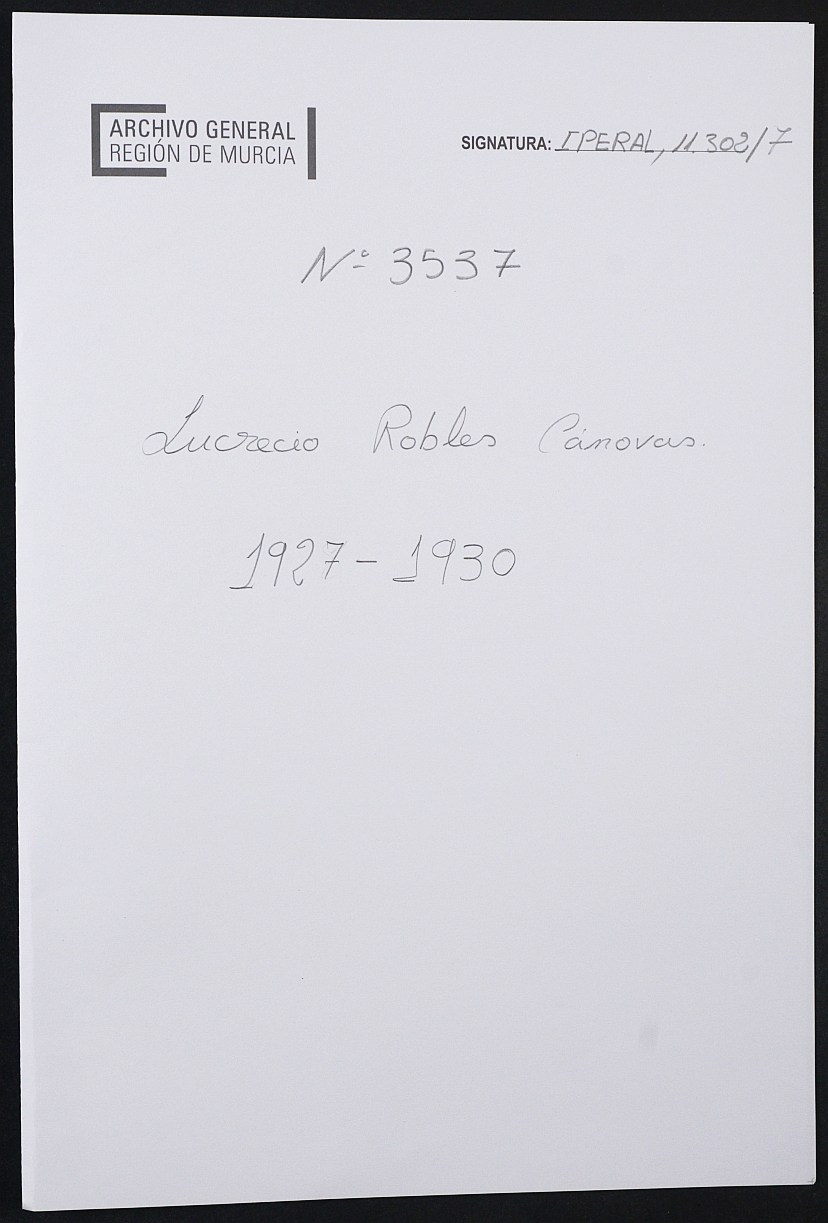 ARCHIVO GENERAL
REGIÓN DE MURCIA
SIGNATURA: IPERAL, 11.302/7
Nº 3537
Lucrecio Robles Cánovas.
1927-1930